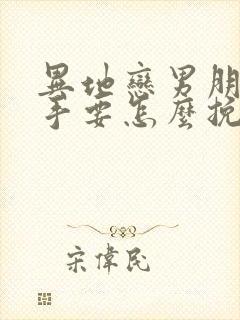 異地戀男朋
手要怎麼挽
宋偉民